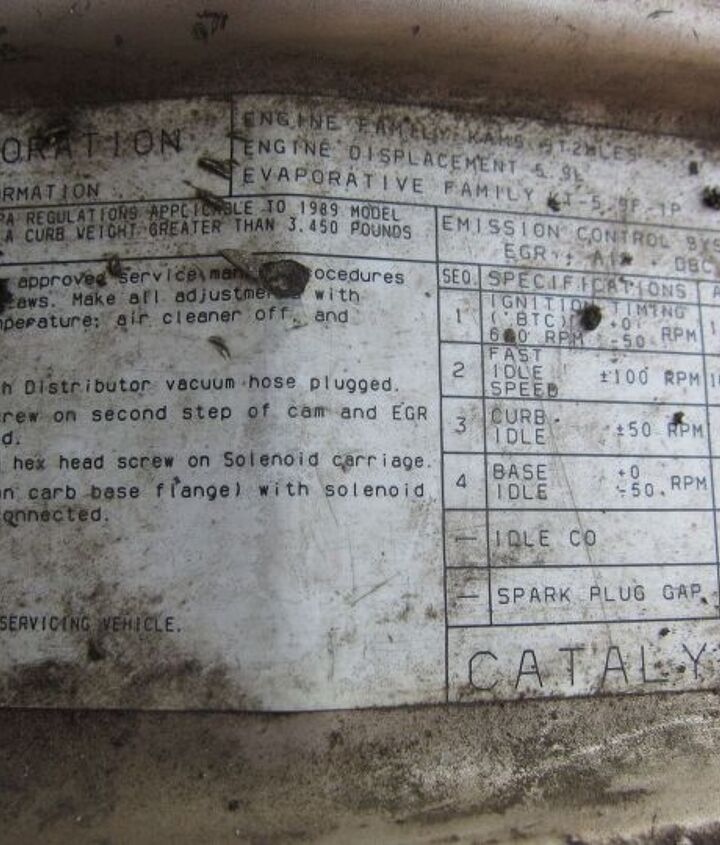 ORATION
RMATION
ENGINE FAMILY
ENGINE DISPLACEMENT 5.9L
EVAPORATIVE FAMILY
PA REGULATIONS APPLICABLE TO 1989 MODEL
A CURB WEIGHT GREATER THAN 3,450 POUNDS
approved service ocedures
aws. Make all adjustments with
mperature; air cleaner off, and
h Distributor vacuum hose plugged.
crew on second step of cam and EGR
d.
hex head screw on Solenoid carriage.
on carb base flange) with solenoid
onnected.
SERVICING VEHICLE.
EMISSION CONTROL SYS
EGR AIR
SEQ. SPECIFICATIONS A
1 IGNITION TIMING
(°BTC) +0
RPM -50 RPM
2 FAST
IDLE ±100 RPM
SPEED
3 CURB
IDLE ±50 RPM
4 BASE +0
IDLE -50 RPM
— IDLE CO
— SPARK PLUG GAP
CATALY